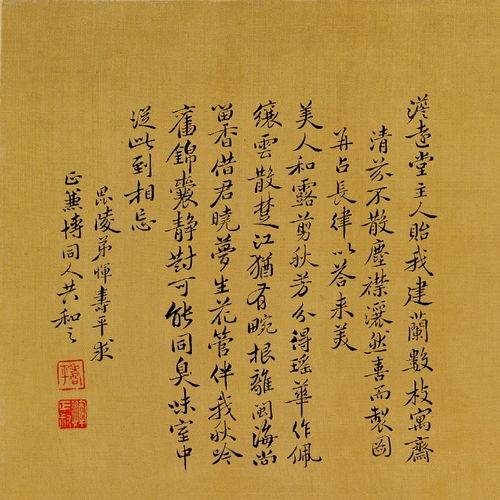 澹遠堂主人貽我建蘭數枝寓齋
清芬不散塵襟灑然喜而製圖
再占長律以答来美
美人和露剪秋芳分得瑤華作佩
纕雲散楚江猶有畹根離閩海尚
留香借君曉夢生花管伴我秋吟
舊錦囊静對可能同臭味室中
從此到相忘
毘陵弟惲壽平求
正兼博同人共和之